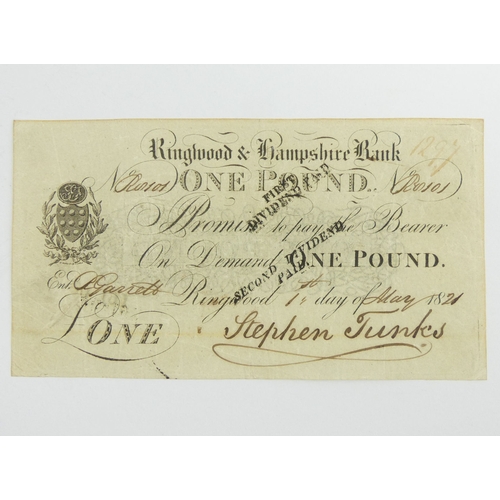 Ringwood & Hampshire Bank
1297
No ONE POUND. No
I Promise to pay the Bearer
On Demand ONE POUND.
Entd. Ringwood 1st day of May 1821
£ONE
Stephen Tunks
FIRST
DIVIDEND PAID
SECOND DIVIDEND
PAID.